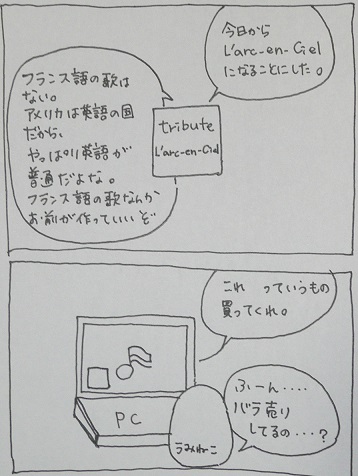 今日から
L'arc-en-Ciel
になることにした。
フランス語の歌は
ない。
アメリカは英語の国
だから、
やっぱり英語が
普通だよな。
フランス語の歌なんか
お前が作っていいぞ
tribute
L'arc-en-Ciel
これ っていうもの
買ってくれ。
PC
うみねこ
ふーん‥‥
バラ売り
してるの‥‥?